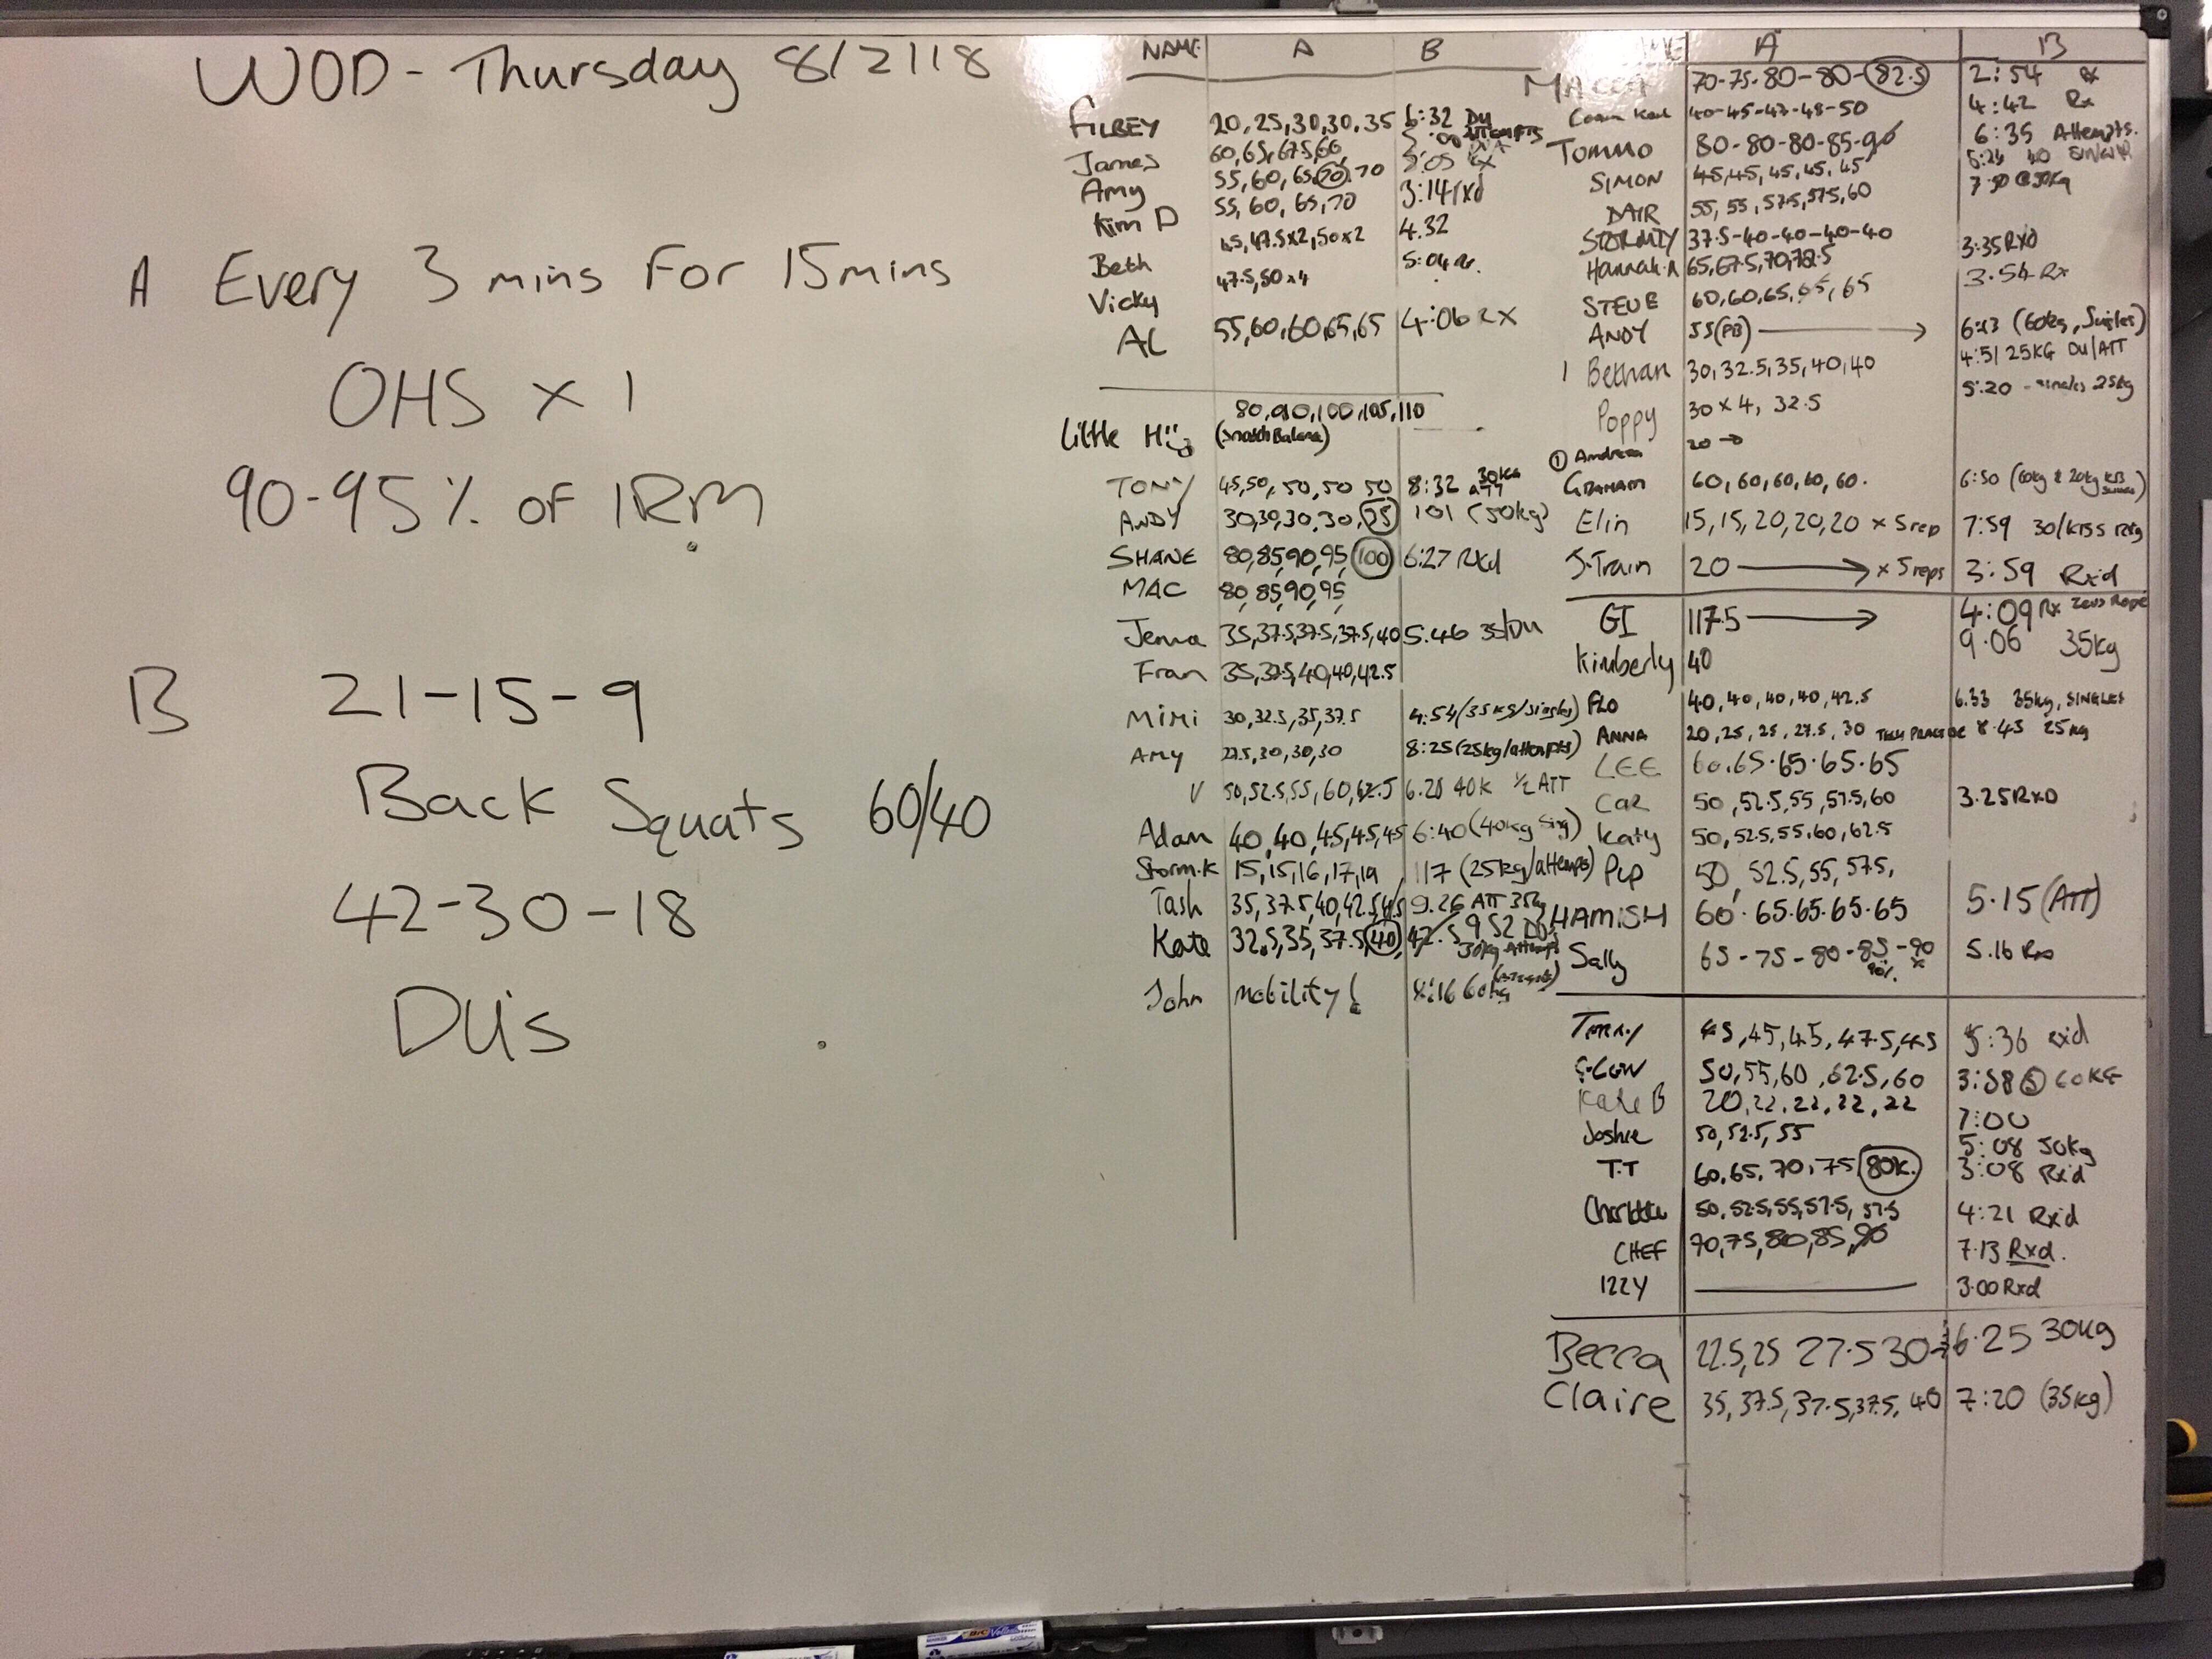 WOD - Thursday 8/2/18
A Every 3 mins For 15mins
OHS x 1
90-95% OF 1RM
B 21-15-9
Back Squats 60/40
42-30-18
DU's
NAME A B
FILBEY 20, 25, 30, 30, 35 6:32 DU ATTEMPTS
James 60, 65, 67.5, 60
Amy 55, 60, 65, 70, 70 3:05 Rx
Kim D 55, 60, 65, 70 3:14 rxd
Beth 45, 47.5x2, 50x2 4.32
Vicky 47.5, 50x4 5:04
AL 55, 60, 60, 65, 65 4:06 RX
Little 80, 90, 100, 105, 110
(Snatch Balance)
TONY 45, 50, 50, 50 50 8:32 30kg ATT
ANDY 30, 30, 30, 30, 25 101 (50kg)
SHANE 80, 85, 90, 95, 100 6:27 RXd
MAC 80, 85, 90, 95,
Jenna 35, 37.5, 37.5, 37.5, 40 5:46 35/DU
Fran 35, 37.5, 40, 40, 42.5
MIMI 30, 32.5, 35, 37.5 4:54 (35kg/singles)
AMY 27.5, 30, 30, 30 8:25 (25kg/attempts)
V 50, 52.5, 55, 60, 62.5 6.28 40k 1/2 ATT
Adam 40, 40, 45, 45, 45 6:40 (40kg Sing)
Storm.K 15, 15, 16, 17, 19 117 (25kg/attemps)
Tash 35, 37.5, 40, 42.5, 9.26 ATT 35kg
Kate 32.5, 35, 37.5, 40, 42.5 9 52 DUs
30kg Attempts
John mobility! 8:16 60kg
A B
MACCA 70-75-80-80-82.5 2:54 Rx
40-45-47-48-50 4:42 Rx
TOMMO 80-80-80-85-90 6:35 Attempts.
SIMON 45, 45, 45, 45, 45
DAIR 55, 55, 57.5, 57.5, 60
STORMTY 37.5-40-40-40-40 3:35 RXD
Hannah.A 65, 67.5, 70, 72.5 3.54 Rx
STEVE 60, 60, 65, 65, 65
ANDY 55 (PB) → 6:13 (60kg, Singles)
4:51 25KG DU/ATT
Bethan 30, 32.5, 35, 40, 40 5:20 - singles 25kg
Poppy 30 x 4, 32.5
① Andrea 20 →
GRAHAM 60, 60, 60, 60, 60. 6:50
Elin 15, 15, 20, 20, 20 x 5 rep 7:59
J-Train 20 → x 5 reps 3:59 Rx'd
GI 117.5 → 4:09 Rx Zeus Rope
Kimberly 40 9.06 35kg
FLO 40, 40, 40, 40, 42.5 6.33 35kg, SINGLES
ANNA 20, 25, 25, 27.5, 30 TECH PRACTICE 8.45 25kg
LEE 60.65.65.65.65
CAR 50, 52.5, 55, 57.5, 60 3.25 RXD
Katy 50, 52.5, 55, 60, 62.5
Pip 50, 52.5, 55, 57.5,
HAMISH 60.65.65.65.65 5.15 (ATT)
Sally 65-75-80-85-90 5.16 Rx
90%. x
45, 45, 45, 47.5, 45 5:36 rxd
50, 55, 60, 62.5, 60 3:58 (S) 60KG
Kate B 20, 22, 22, 22, 22 7:00
Joshie 50, 52.5, 55 5:08 50kg
T.T 60, 65, 70, 75, 80k. 3:08 Rx'd
Charlotte 50, 52.5, 55, 57.5, 57.5 4:21 Rx'd
CHEF 70, 75, 80, 85, 90 7.13 Rxd.
IZZY 3.00 Rxd
Becca 22.5, 25 27.5 30 → 6.25 30kg
Claire 35, 37.5, 37.5, 37.5, 40 7:20 (35kg)
BIC Velleda